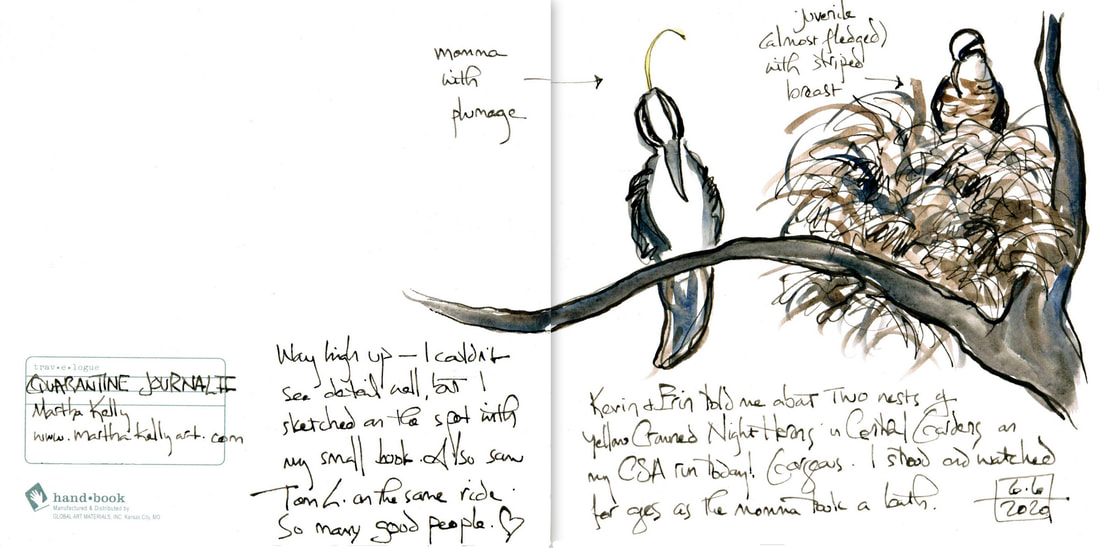 momma
with
plumage
juvenile
(almost fledged)
with striped
breast
trav•e•logue
QUARANTINE JOURNAL II
Martha Kelly
www.marthakellyart.com
hand•book
Manufactured & Distributed by
GLOBAL ART MATERIALS, INC. Kansas City, MO
Way high up — I couldn't
see detail well, but I
sketched on the spot with
my small book. Also saw
Tom L. on the same ride.
So many good people. ♡
Kevin & Erin told me about two nests of
Yellow Crowned Night Herons in Central Gardens on
my CSA run today! Gorgeous. I stood and watched
for ages as the momma took a bath.
6.6
2020